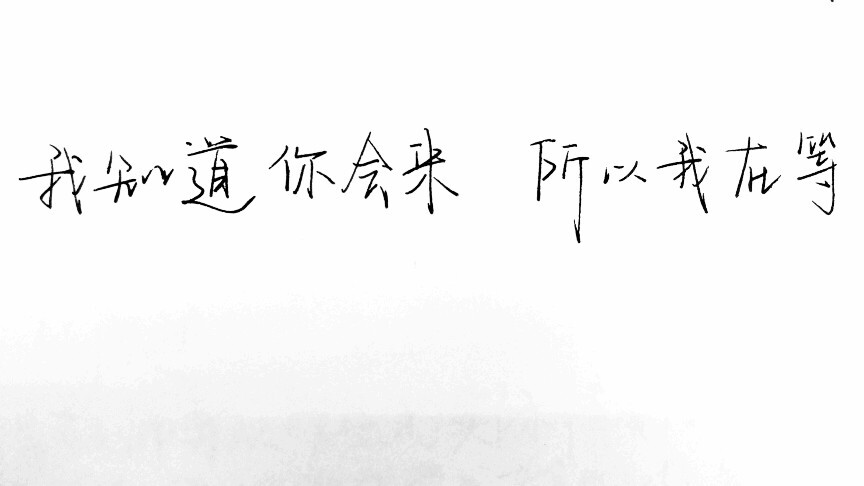 我知道你会来 所以我在等